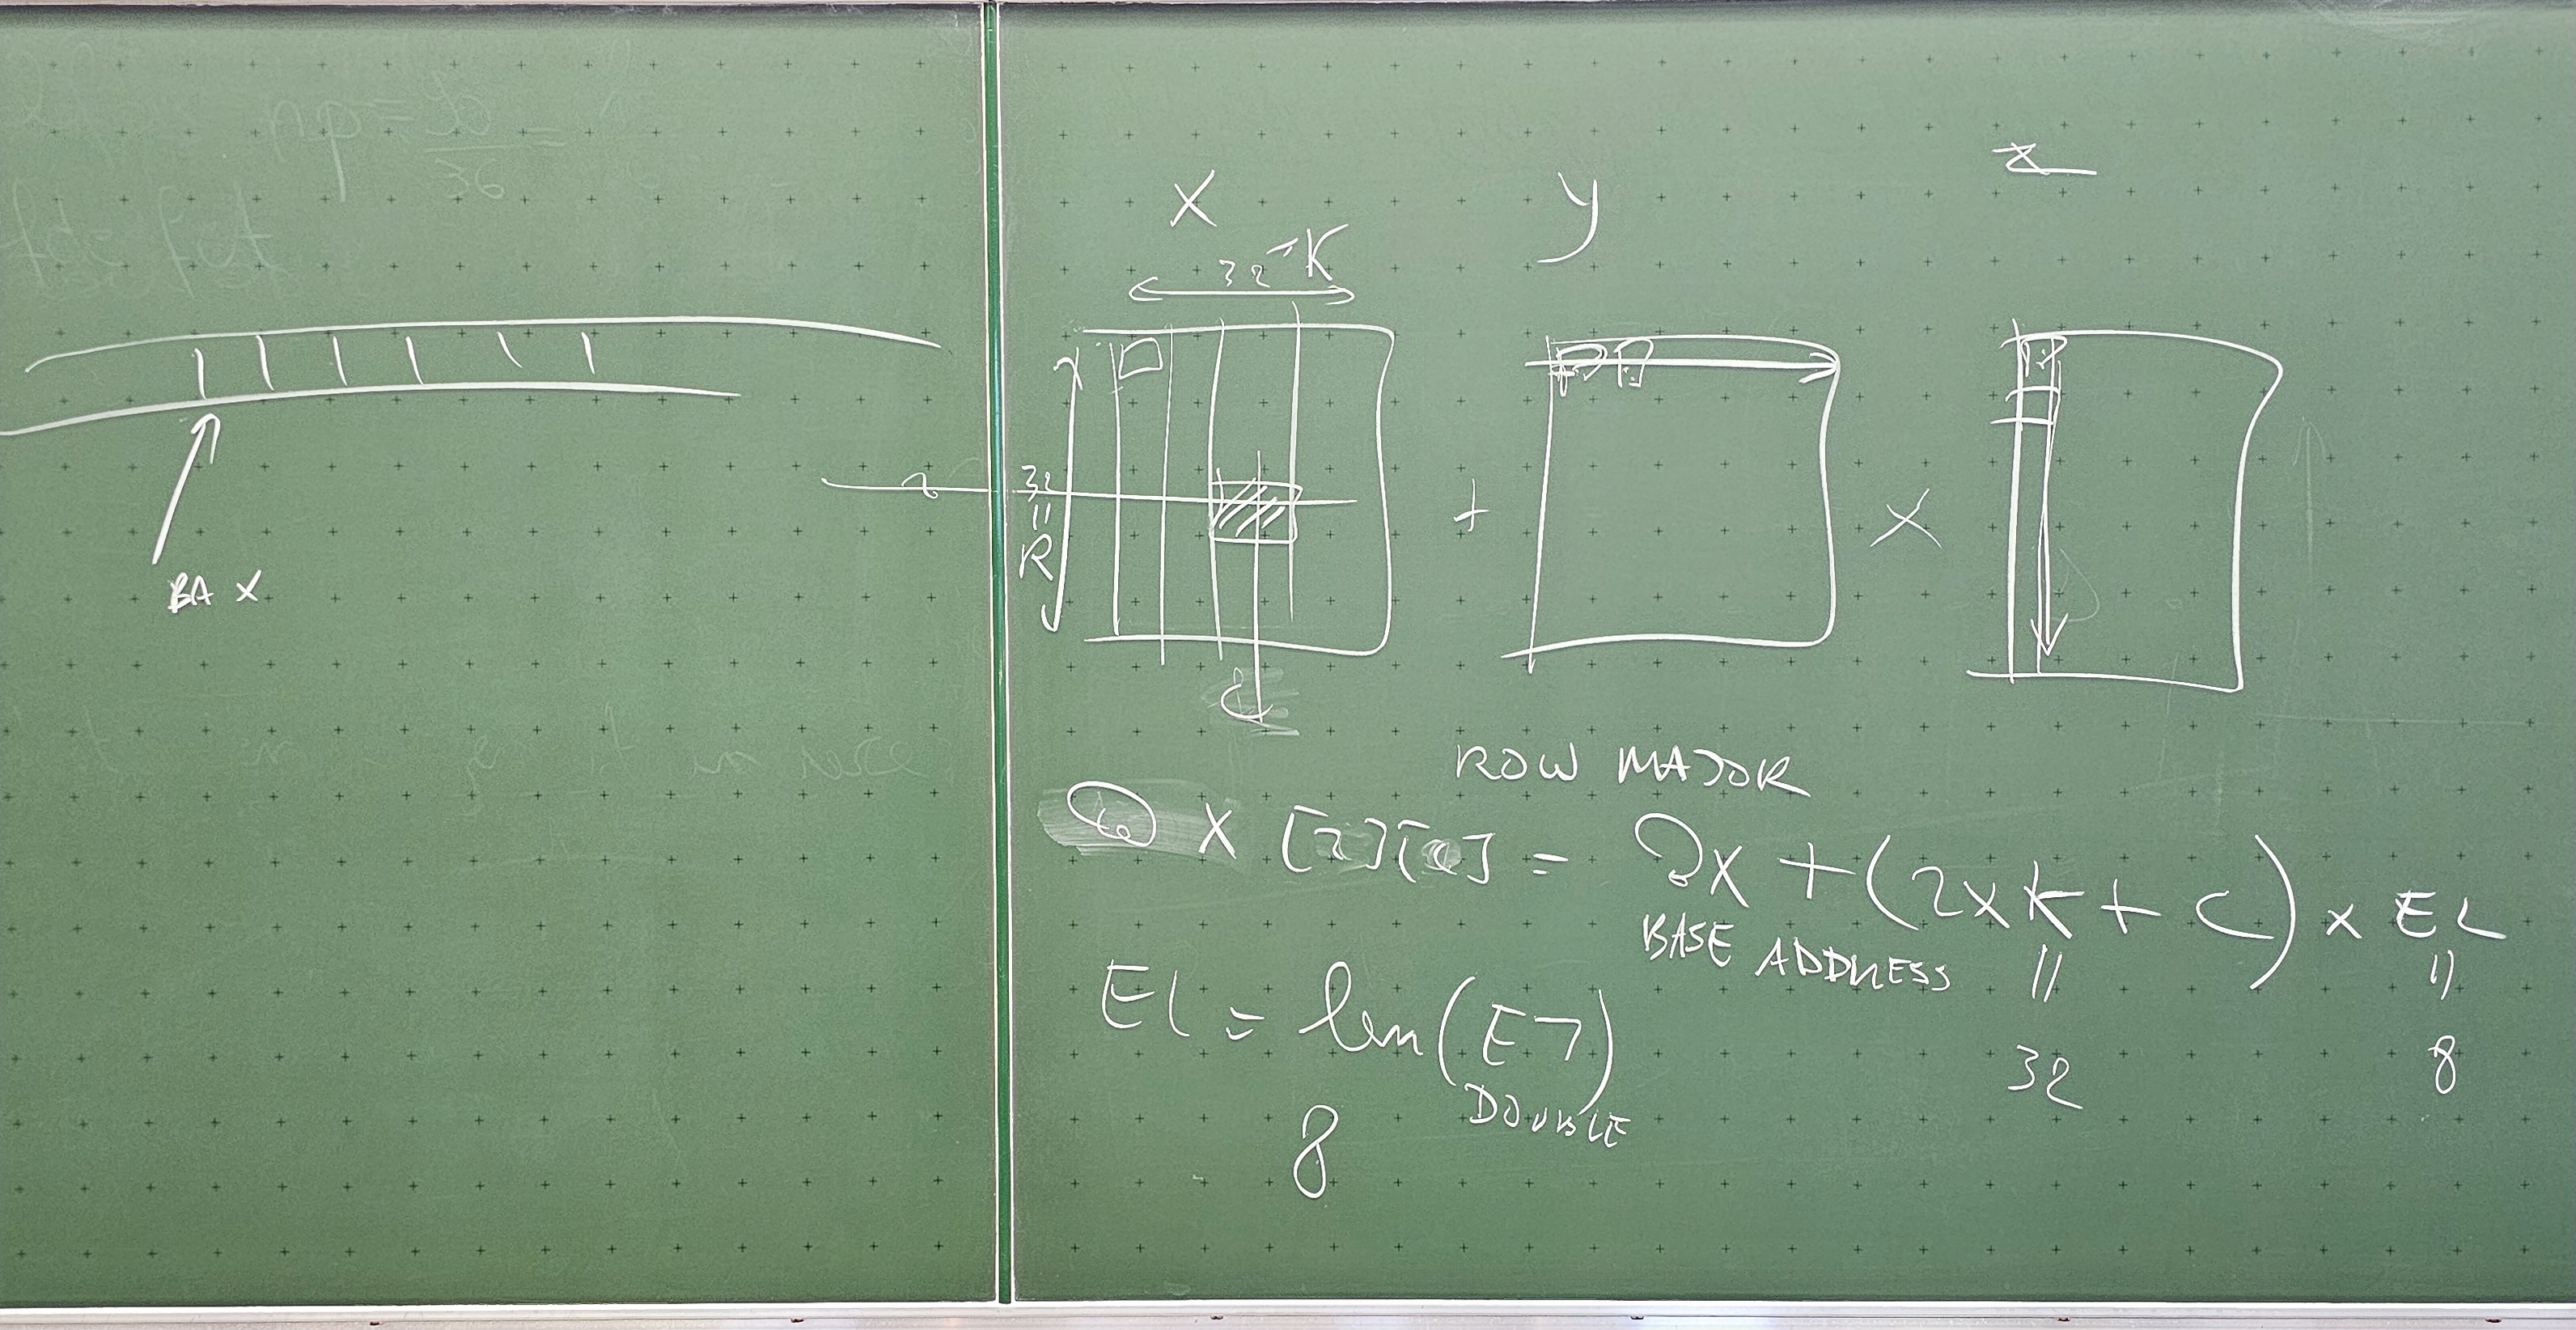 BA X
X
y
z
32 = K
32
=
R
+
x
C
ROW MAJOR
@ X [2][c] = @X + (2 x K + C) x EL
BASE ADDRESS
= 32
= 8
EL = len(ET)
DOUBLE
8